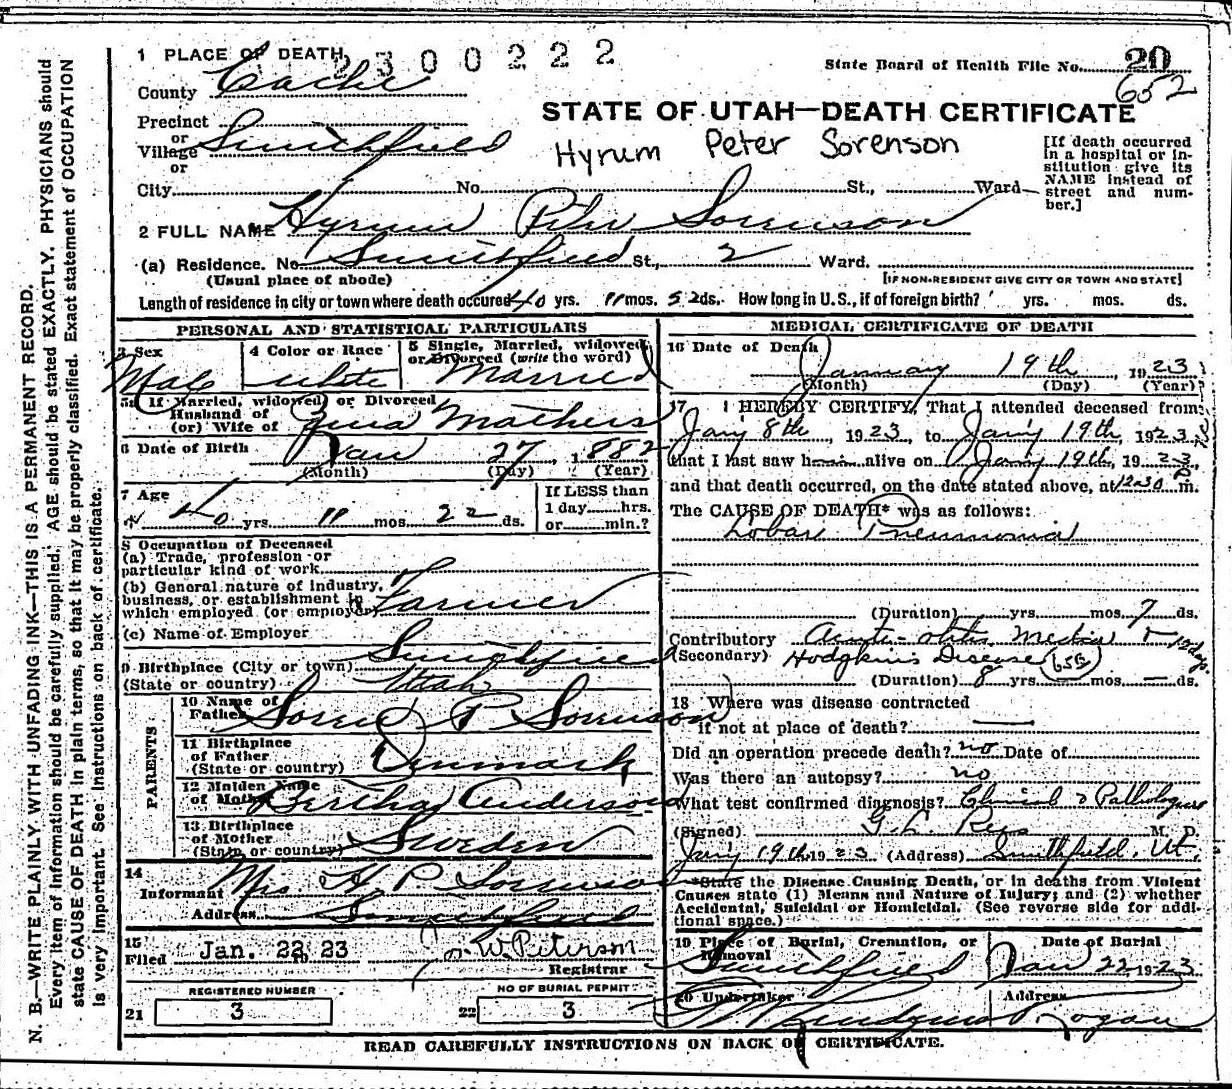 1 PLACE OF DEATH 2300222
State Board of Health File No. 20
652
County Cache
STATE OF UTAH—DEATH CERTIFICATE
Precinct
or
Village Smithfield
or
Hyrum Peter Sorenson
[If death occurred in a hospital or institution give its NAME instead of street and number.]
City No. St., Ward
2 FULL NAME Hyrum Peter Sorenson
(a) Residence. No. Smithfield St., 2 Ward.
(Usual place of abode) [IF NON-RESIDENT GIVE CITY OR TOWN AND STATE]
Length of residence in city or town where death occured 40 yrs. 11 mos. ds. How long in U.S., if of foreign birth? yrs. mos. ds.
PERSONAL AND STATISTICAL PARTICULARS
3 Sex
Male
4 Color or Race
White
5 Single, Married, widowed, or Divorced (write the word)
Married
5a If Married, widowed, or Divorced
Husband of
(or) Wife of Zina Mathers
6 Date of Birth Jan 27 1882
(Month) (Day) (Year)
7 Age
40 yrs. 11 mos. 22 ds.
If LESS than
1 day hrs.
or min.?
8 Occupation of Deceased
(a) Trade, profession or
particular kind of work
(b) General nature of industry,
business, or establishment in
which employed (or employer) Farmer
(c) Name of Employer
9 Birthplace (City or town) Smithfield
(State or country) Utah
PARENTS
10 Name of
Father P Sorenson
11 Birthplace
of Father
(State or country) Denmark
12 Maiden Name
of Mother Bertha Anderson
13 Birthplace
of Mother
(State or country) Sweden
14
Informant Mrs H. P. Sorenson
Address Smithfield
15
Filed Jan. 22 23 W. Peterson
Registrar
REGISTERED NUMBER
21 3
NO OF BURIAL PERMIT
22 3
MEDICAL CERTIFICATE OF DEATH
16 Date of Death
January 19th, 1923
(Month) (Day) (Year)
17 I HEREBY CERTIFY, That I attended deceased from
Jany 8th, 1923, to Jany 19th, 1923,
that I last saw h alive on Jany 19th, 1923,
and that death occurred, on the date stated above, at 12:30 m.
The CAUSE OF DEATH* was as follows:
Lobar Pneumonia
(Duration) yrs. mos. 7 ds.
Contributory Acute otitis Media 12 days
(Secondary) Hodgkin's Disease 65B
(Duration) 8 yrs. mos. — ds.
18 Where was disease contracted
if not at place of death?
Did an operation precede death? no Date of
Was there an autopsy? no
What test confirmed diagnosis? Clinical &
(Signed) G. L. Rees M. D.
Jany 19th 1923 (Address) Smithfield, Ut.
*State the Disease Causing Death, or in deaths from Violent
Causes state (1) Means and Nature of Injury; and (2) whether
Accidental, Suicidal or Homicidal. (See reverse side for addi-
tional space.)
19 Place of Burial, Cremation, or
Removal
Smithfield
Date of Burial
Jan 22 1923
20 Undertaker
Address
Logan
READ CAREFULLY INSTRUCTIONS ON BACK OF CERTIFICATE.
N. B.—WRITE PLAINLY WITH UNFADING INK—THIS IS A PERMANENT RECORD.
Every item of information should be carefully supplied. AGE should be stated EXACTLY. PHYSICIANS should
state CAUSE OF DEATH in plain terms, so that it may be properly classified. Exact statement of OCCUPATION
is very important. See instructions on back of certificate.